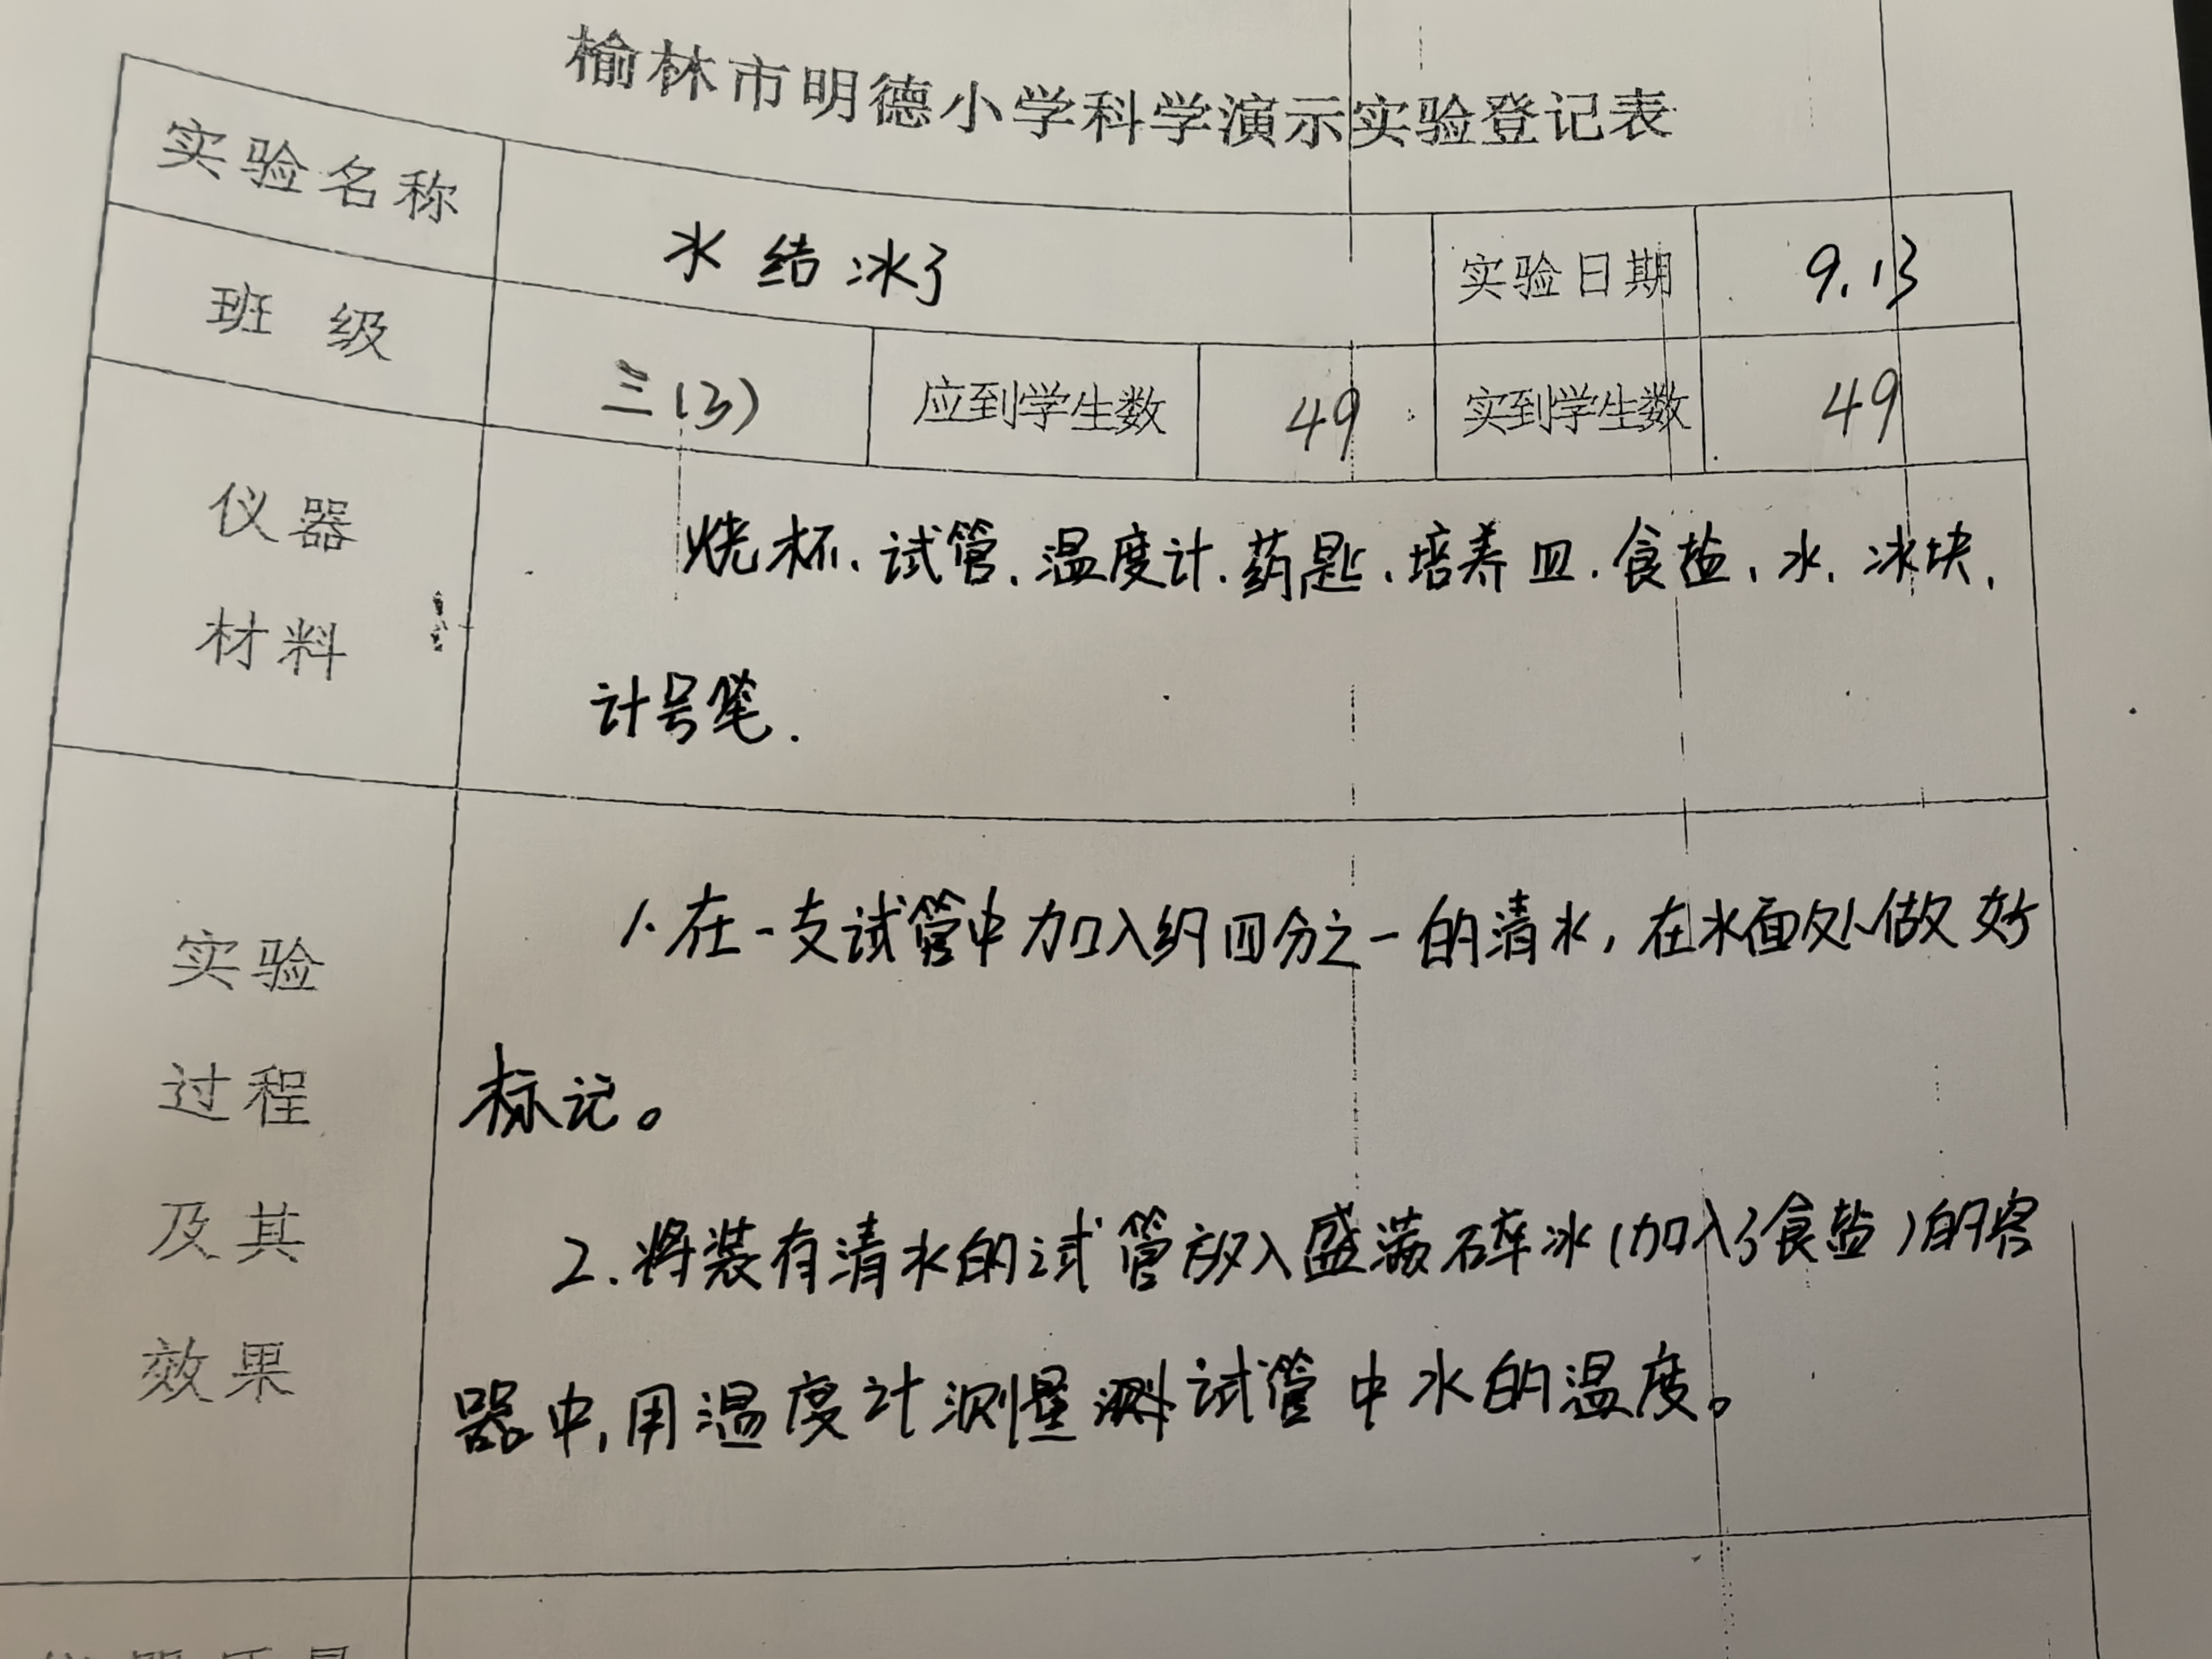 榆林市明德小学科学演示实验登记表
实验名称 水结冰了 实验日期 9.13
班级 三(3) 应到学生数 49 实到学生数 49
仪器 烧杯、试管、温度计、药匙、培养皿、食盐、水、冰块、
材料 计号笔.
1.在一支试管中加入约四分之一的清水,在水面处做好
实验
过程 标记。
及其 2.将装有清水的试管放入盛满碎冰(加入了食盐)的容
效果 器中,用温度计测量 试管中水的温度。